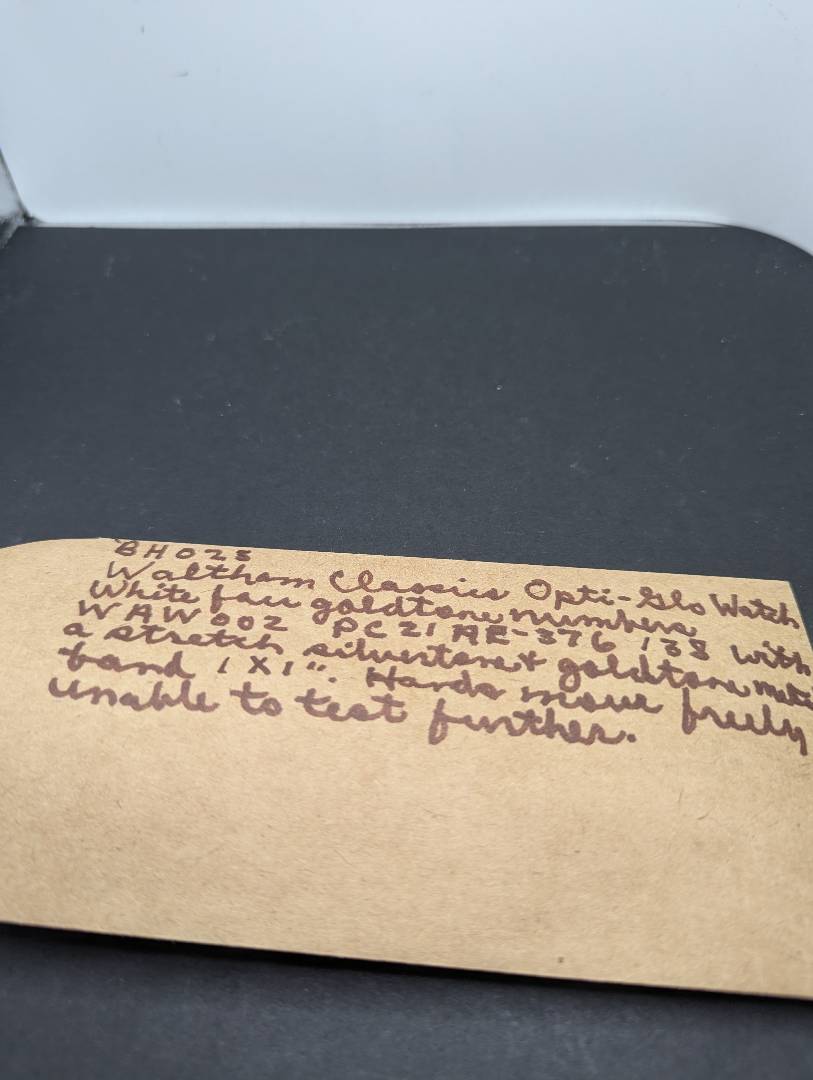 BH023
Waltham Classics Opti-Glo Watch
White face goldtone numbers
WAW002 PC21 AE-376 138 with
a stretch silvertone & goldtone metal
band 1 X 1". Hands move freely
unable to test further.